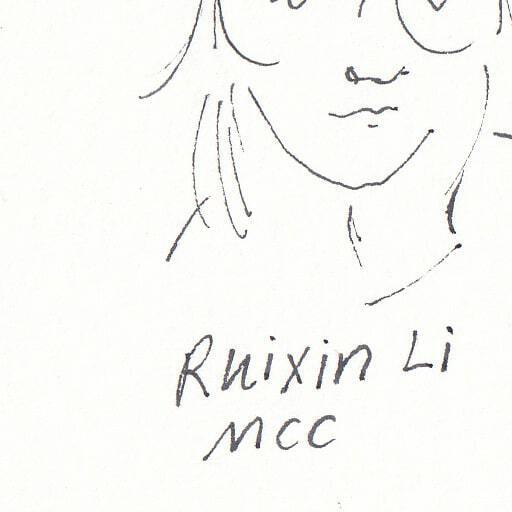 Ruixin Li
MCC